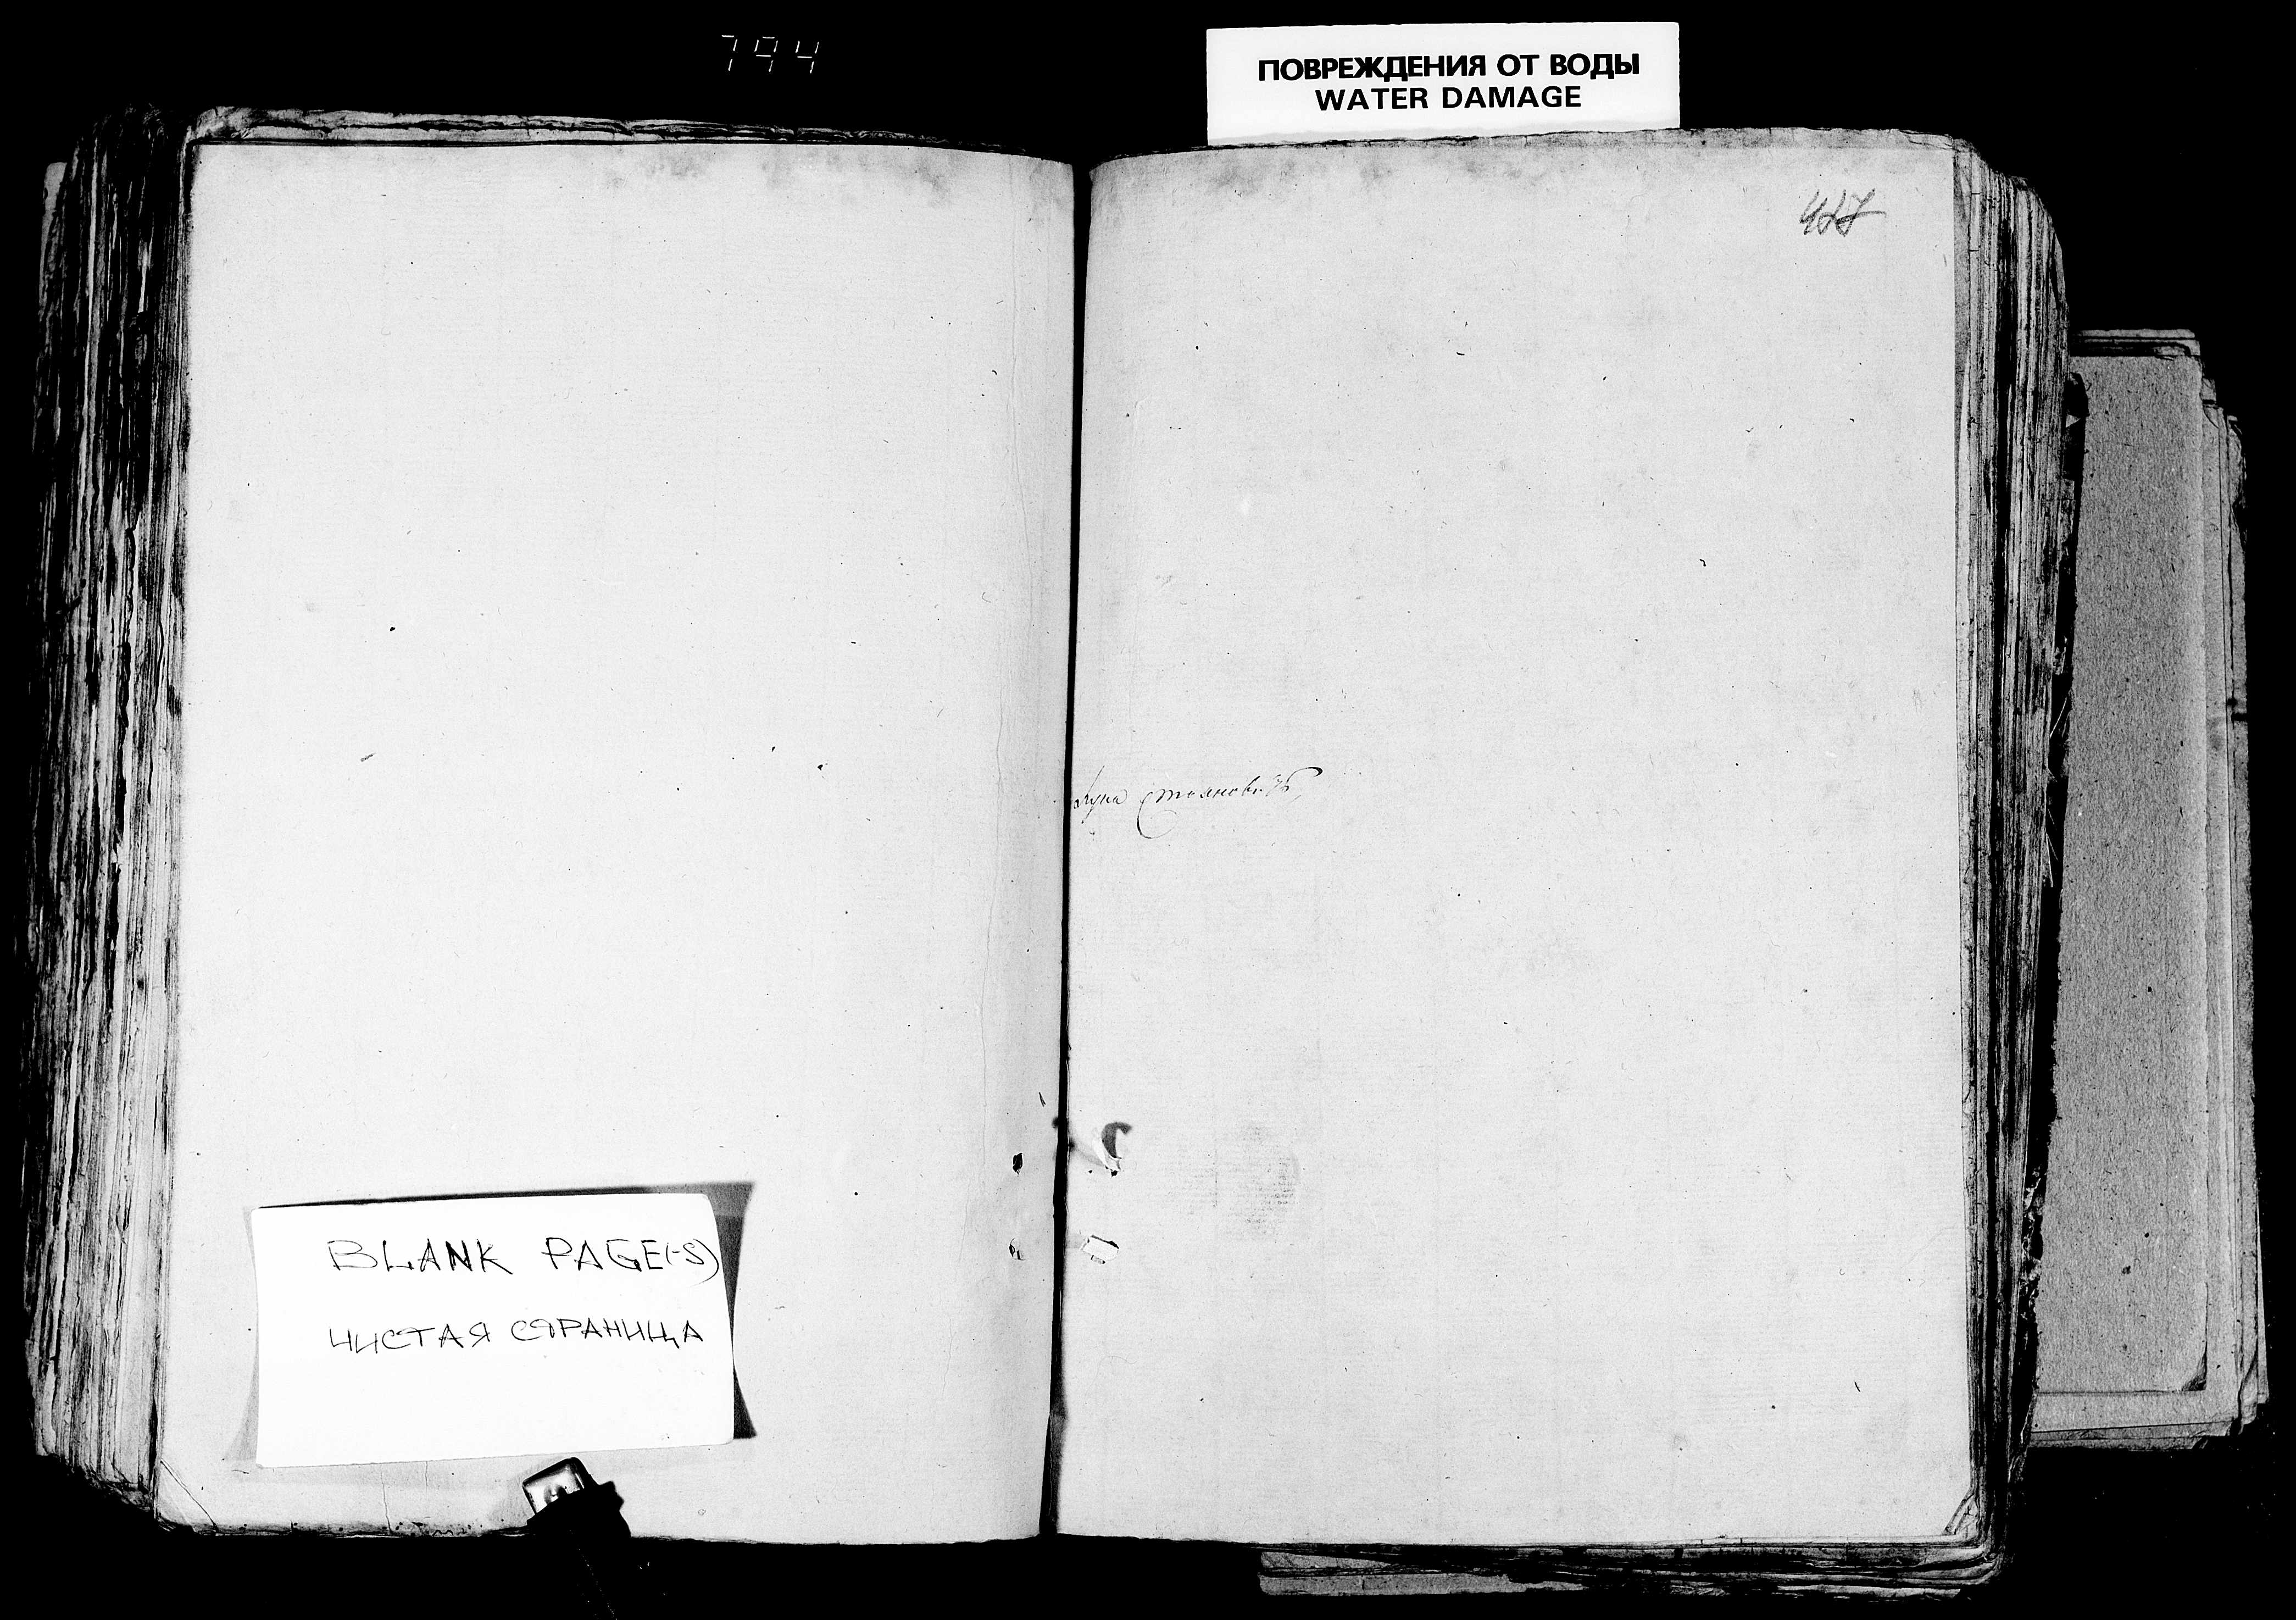 794
ПОВРЕЖДЕНИЯ ОТ ВОДЫ
WATER DAMAGE
BLANK PAGE(-S)
ЧИСТАЯ СТРАНИЦА